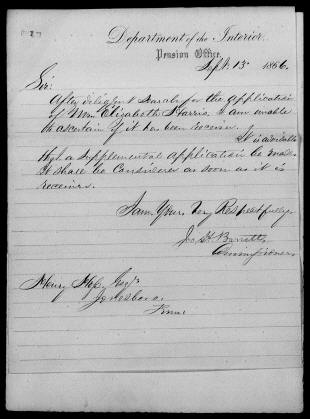 Department of the Interior.
Pension Office,
Sept. 13 1866.
Sir:
After diligent search for the application
of Mrs Elizabeth Harris I am unable
to ascertain if it has been received.
It is advisable
that a supplemental application be made.
It shall be considered as soon as it is
received.
I am Yours, Very Respectfully
Jos. H. Barrett
Commissioner
Henry Esqr
Jonesboro
Tenn